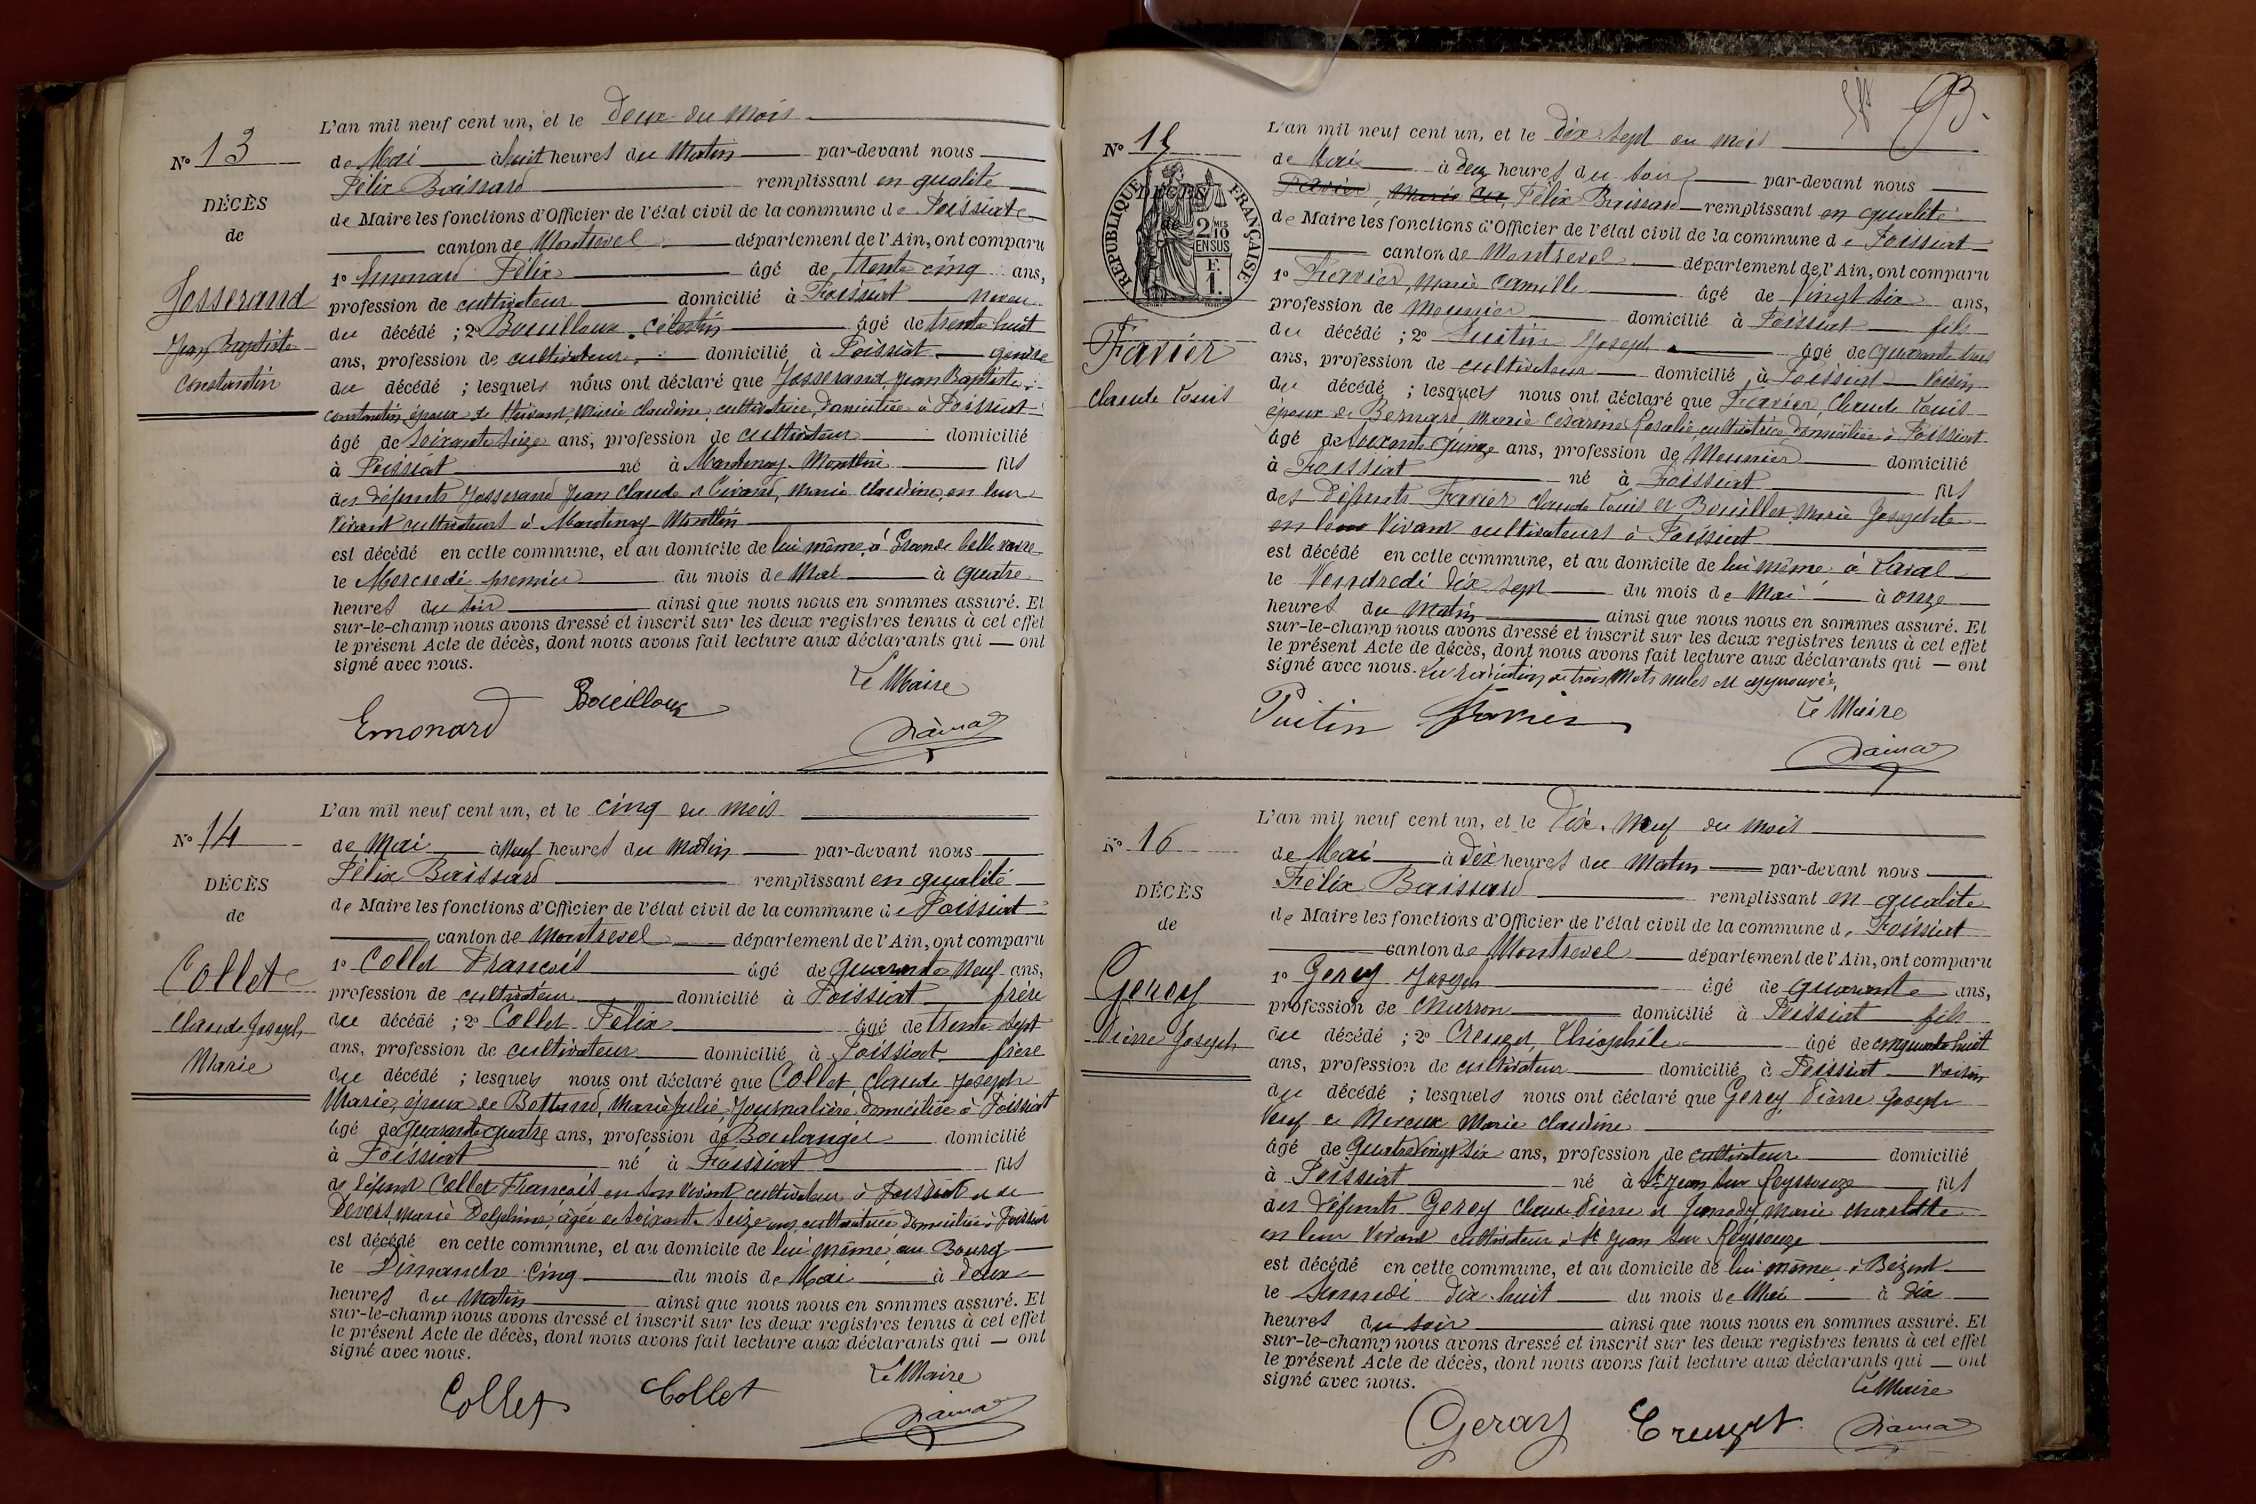 N° 13
DÉCÈS
de
Josserand
Jean Baptiste
Constantin
L'an mil neuf cent un, et le Deux du mois
de Mai à huit heures du Matin par-devant nous
Félix Boissard remplissant en qualité
de Maire les fonctions d'Officier de l'état civil de la commune de Foissiat
canton de Montrevel département de l'Ain, ont comparu
1° Emonard Félix âgé de trente cinq ans,
profession de cultivateur domicilié à Foissiat neveu
du décédé ; 2° Bouilloux Célestin âgé de trente huit
ans, profession de cultivateur domicilié à Foissiat gendre
du décédé ; lesquels nous ont déclaré que Josserand Jean Baptiste
constantin, époux de Marie claudine, cultivatrice, domiciliée à Foissiat
âgé de soixante seize ans, profession de cultivateur domicilié
à Foissiat né à Mantenay-Montlin fils
des défunts Josserand Jean Claude et Marie claudine, en leur
vivant cultivateurs à Mantenay-Montlin
est décédé en cette commune, et au domicile de lui même, à Grande
le Mercredi premier du mois de Mai à quatre
heures du soir ainsi que nous nous en sommes assuré. Et
sur-le-champ nous avons dressé et inscrit sur les deux registres tenus à cet effet
le présent Acte de décès, dont nous avons fait lecture aux déclarants qui — ont
signé avec nous.
Le Maire
Emonard Bouilloux
N° 14
DÉCÈS
de
Collet
Claude Joseph
Marie
L'an mil neuf cent un, et le cinq du mois
de Mai à neuf heures du Matin par-devant nous
Félix Boissard remplissant en qualité
de Maire les fonctions d'Officier de l'état civil de la commune de Foissiat
canton de Montrevel département de l'Ain, ont comparu
1° Collet François âgé de quarante neuf ans,
profession de cultivateur domicilié à Foissiat frère
du décédé ; 2° Collet Félix âgé de trente sept
ans, profession de cultivateur domicilié à Foissiat frère
du décédé ; lesquels nous ont déclaré que Collet, Claude Joseph
Marie, époux de Marie Julie, Journalière, domiciliée à Foissiat
âgé de quarante quatre ans, profession de Boulanger domicilié
à Foissiat né à Foissiat fils
de défunt Collet François en son vivant cultivateur à Foissiat et de
Devert, Marie Delphine, âgée de soixante seize ans, cultivatrice domiciliée à Foissiat
est décédé en cette commune, et au domicile de lui même au Bourg
le Dimanche cinq du mois de Mai à deux
heures du Matin ainsi que nous nous en sommes assuré. Et
sur-le-champ nous avons dressé et inscrit sur les deux registres tenus à cet effet
le présent Acte de décès, dont nous avons fait lecture aux déclarants qui — ont
signé avec nous.
Le Maire
Collet Collet
93.
N° 15
DÉCÈS
de
RÉPUBLIQUE FRANÇAISE
2/10 EN SUS
F. 1.
Favier
Claude Louis
L'an mil neuf cent un, et le dix sept du mois
de Mai à deux heures du soir par-devant nous
Favier, Marie Félix Boissard remplissant en qualité
de Maire les fonctions d'Officier de l'état civil de la commune de Foissiat
canton de Montrevel département de l'Ain, ont comparu
1° Favier, Marie Camille âgé de vingt six ans,
profession de Meunier domicilié à Foissiat fils
du décédé ; 2° Puitin Joseph âgé de quarante trois
ans, profession de cultivateur domicilié à Foissiat voisin
du décédé ; lesquels nous ont déclaré que Favier, Claude Louis
époux de Bernard Marie Césarine Rosalie, cultivatrice domiciliée à Foissiat
âgé de soixante quinze ans, profession de Meunier domicilié
à Foissiat né à Foissiat fils
des défunts Favier Claude Louis et Bouiller Marie Josephte
en leur vivant cultivateurs à Foissiat
est décédé en cette commune, et au domicile de lui même à Laval
le Vendredi dix sept du mois de Mai à onze
heures du Matin ainsi que nous nous en sommes assuré. Et
sur-le-champ nous avons dressé et inscrit sur les deux registres tenus à cet effet
le présent Acte de décès, dont nous avons fait lecture aux déclarants qui — ont
signé avec nous. La radiation de trois mots nules est approuvée,
Le Maire
Puitin Favier
N° 16
DÉCÈS
de
Gerey
Pierre Joseph
L'an mil neuf cent un, et le dix-neuf du mois
de Mai à dix heures du Matin par-devant nous
Félix Boissard remplissant en qualité
de Maire les fonctions d'Officier de l'état civil de la commune de Foissiat
canton de Montrevel département de l'Ain, ont comparu
1° Gerey Joseph âgé de quarante ans,
profession de charron domicilié à Foissiat fils
du décédé ; 2° Creuzet Théophile âgé de cinquante huit
ans, profession de cultivateur domicilié à Foissiat voisin
du décédé ; lesquels nous ont déclaré que Gerey, Pierre Joseph
veuf de Marie claudine
âgé de quatre vingt six ans, profession de cultivateur domicilié
à Foissiat né à St Jean sur Reyssouze fils
des défunts Gerey Claude Pierre et Jannody, Marie charlotte
en leur vivant cultivateur à St Jean sur Reyssouze
est décédé en cette commune, et au domicile de lui même à Bézent
le Samedi dix-huit du mois de Mai à dix
heures du soir ainsi que nous nous en sommes assuré. Et
sur-le-champ nous avons dressé et inscrit sur les deux registres tenus à cet effet
le présent Acte de décès, dont nous avons fait lecture aux déclarants qui — ont
signé avec nous.
Le Maire
Geray Creuzet